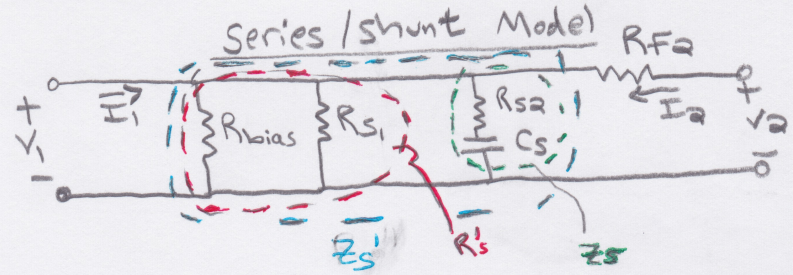 Series/shunt Model
RF2
+
I1
I2
+
V1
Rbias
RS1
RS2
CS
V2
-
-
ZS'
R'S
ZS